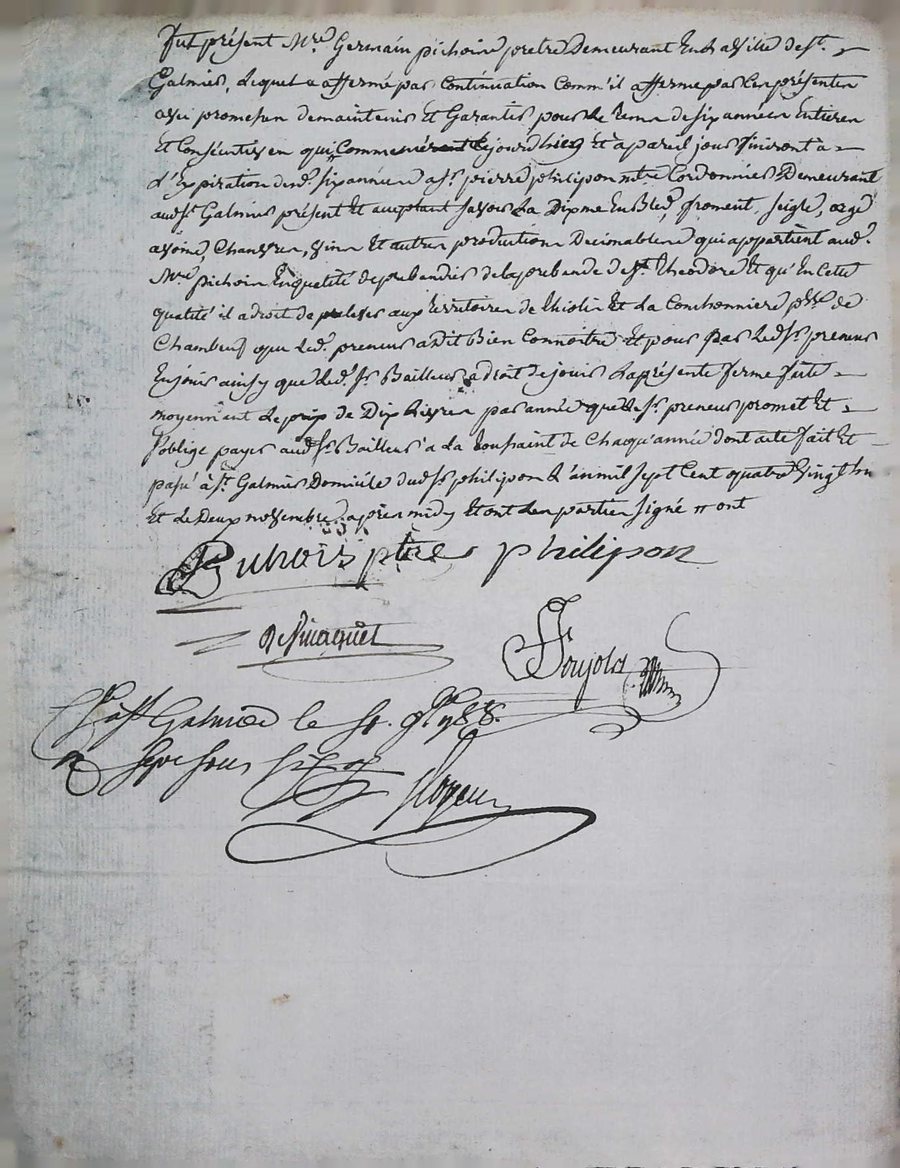 fut présent Mre. Germain pichoin pretre Demeurant En La Ville de st.
Galmier, Lequel a affermé par Continuation Comm'il afferme par Les présentes
avec promesse de maintenir Et Garantir pour Le terme de six années Entieres
Et Consécutives qui Commencent Cejourdhier Et a pareil jour finiront à
L'Expiration desd. six années a sr. pierre philipon mtre Cordonnier Demeurant
aud. st. Galmier présent Et aceptant savoir La Dixme En Bled, froment, seigle, orge
avoine, Chanvres, vin Et autres productions Décimables qui appartient aud.
Mre. pichoin En qualité de prebandier de la prebande de st. theodore Et qu'En Cette
qualité il a droit de aux territoire de Et La Conchonniere psse. de
Chambeuf que Led. preneur a Dit Bien Connoitre Et pour par Led. sr. preneur
En jouir ainsy que Led. sr. Bailleur a droit de jouir La présente ferme faite
moyennent Le prix de Dix Livres par année que Le sr. preneur promet Et
s'oblige payer aud. sr. Bailleur a La toussaint de Chaqu'année dont acte fait Et
passé à st. Galmier Domicile dud. sr. philipon L'an mil sept Cent quatre vingt
Et Le Deux novembre après midy Et ont Les parties signé ont
ptre philipon
Galmier le
sols